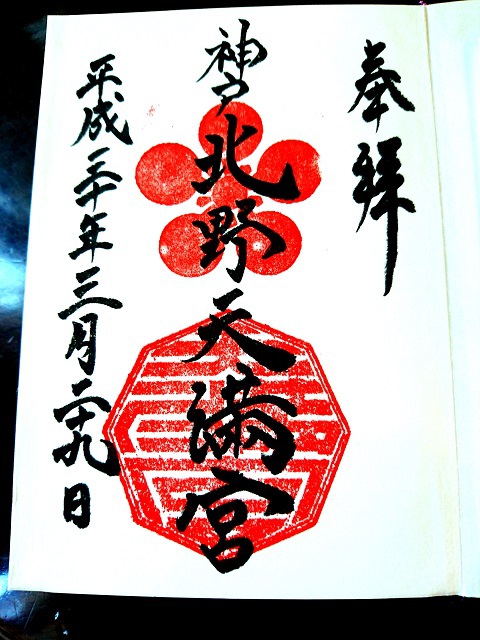 奉拝
神戸北野天満宮
平成三十年三月二十九日